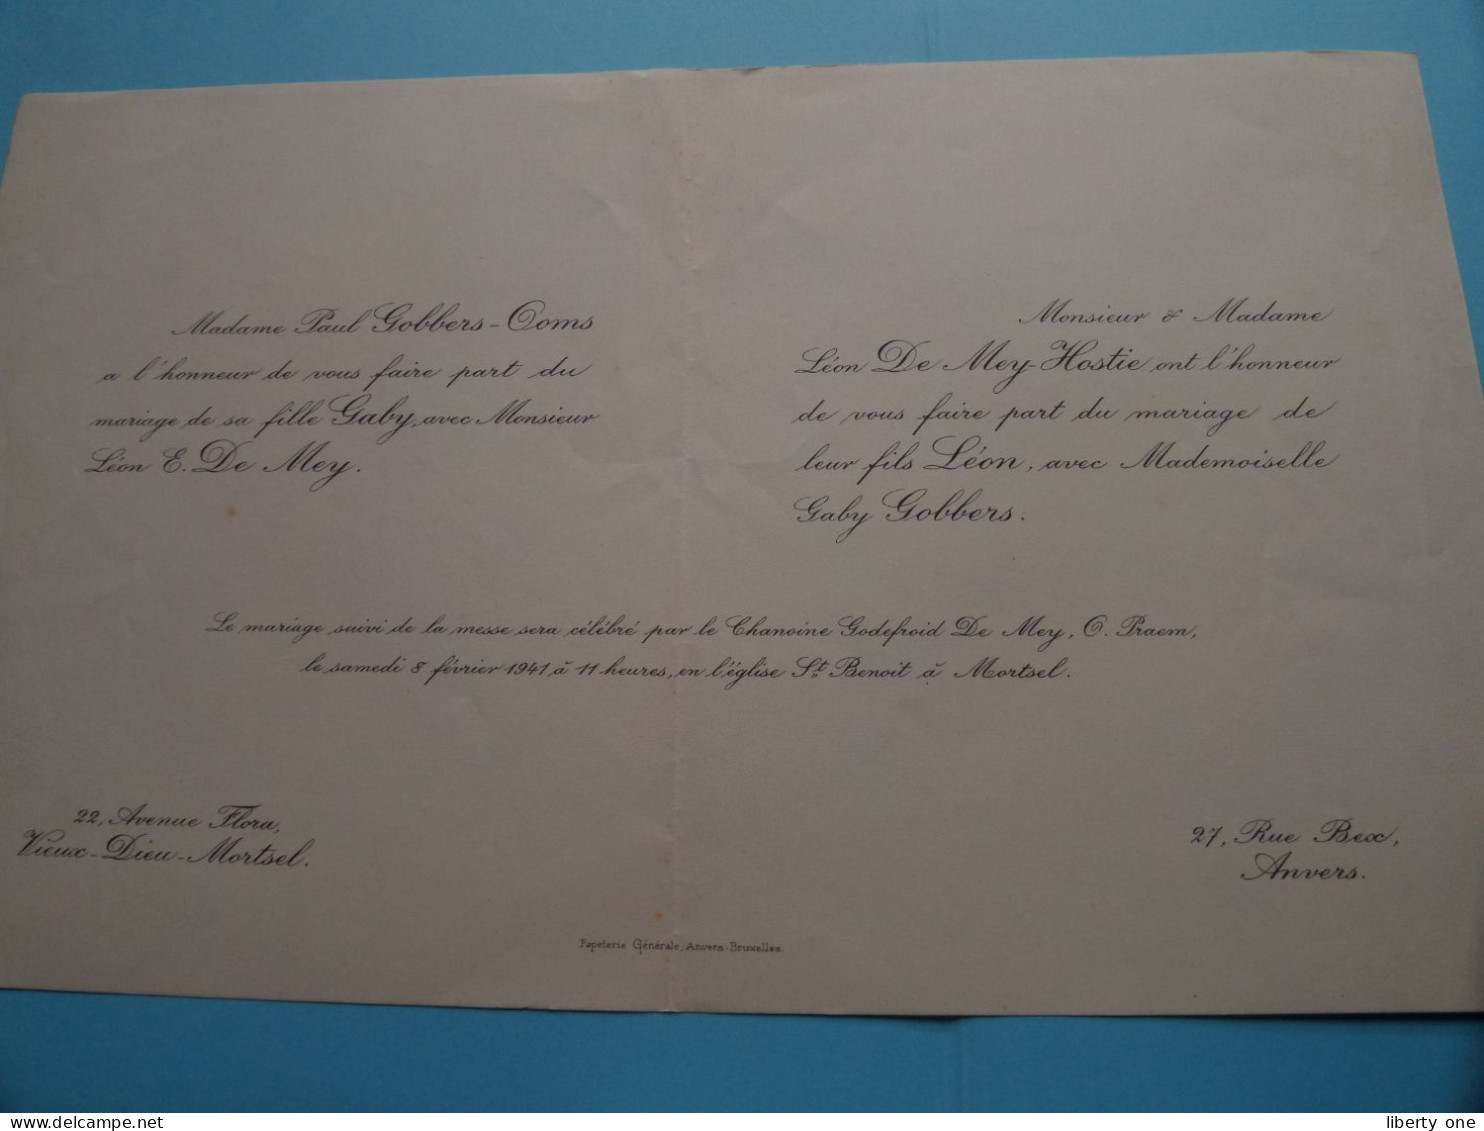 Madame Paul Gobbers-Ooms
a l'honneur de vous faire part du
mariage de sa fille Gaby, avec Monsieur
Léon E. De Mey.
Monsieur & Madame
Léon De Mey-Hostie ont l'honneur
de vous faire part du mariage de
leur fils Léon, avec Mademoiselle
Gaby Gobbers.
Le mariage suivi de la messe sera célébré par le Chanoine Godefroid De Mey, O. Praem,
le samedi 8 février 1941 à 11 heures, en l'église St Benoit à Mortsel.
22, Avenue Flora,
Vieux-Dieu-Mortsel.
27, Rue Bex,
Anvers.
Papeterie Générale, Anvers-Bruxelles.
liberty one